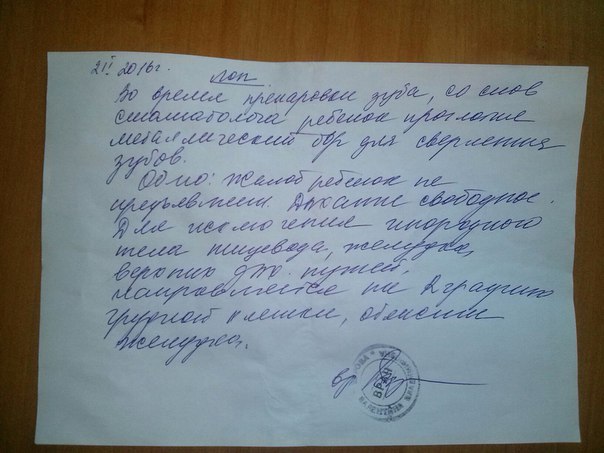 2III 2016г. лоп
Во время препаровки зуба, со слов
стоматолога ребенок проглотил
металлический бор для сверления
зубов.
Об-но: Жалоб ребенок не
предъявляет. Дыхание свободное.
Для исключения инородного
тела пищевода, желудка,
верхних дых. путей,
направляется на Rграфию
грудной клетки, области
желудка.
вр.
ВРАЧ